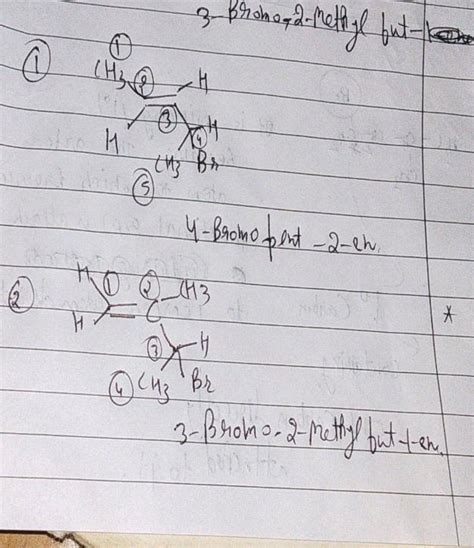 3-Bromo-2-Methyl but-1-
①
①
CH3 ② H
③
H ④ H
CH3 Br
⑤
4-Bromo pent-2-en.
②
H ① ② CH3
H C
③ H
④ CH3 Br
*
3-Bromo-2-Methyl but-1-en.